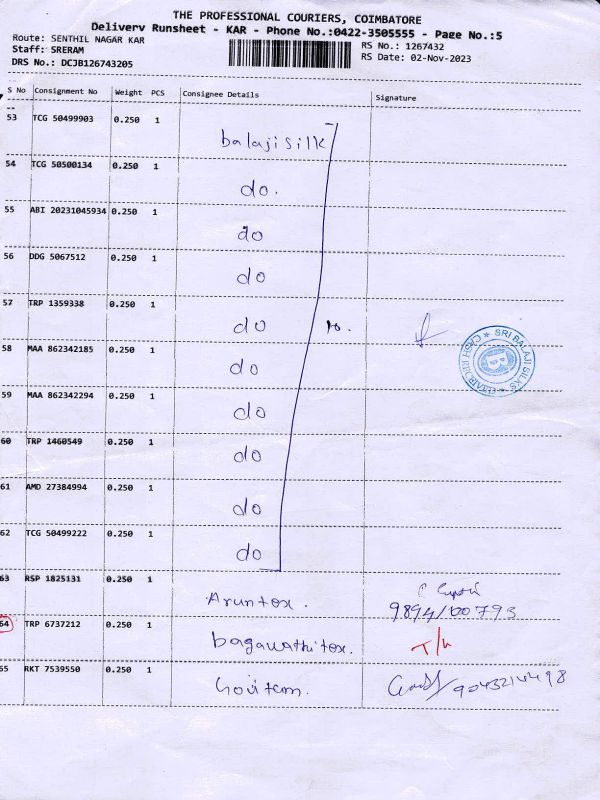 THE PROFESSIONAL COURIERS, COIMBATORE
Delivery Runsheet - KAR - Phone No.:0422-3505555 - Page No.:5
Route: SENTHIL NAGAR KAR
RS No.: 1267432
Staff: SRERAM
RS Date: 02-Nov-2023
DRS No.: DCJB126743205
S No Consignment No Weight PCS Consignee Details Signature
53 TCG 50499903 0.250 1
balaji silk
54 TCG 50500134 0.250 1
do.
55 ABI 20231045934 0.250 1
do
56 DDG 5067512 0.250 1
do
57 TRP 1359338 0.250 1
do 10.
58 MAA 862342185 0.250 1
do
SRI BALAJI SILKS
59 MAA 862342294 0.250 1
do
60 TRP 1460549 0.250 1
do
61 AMD 27384994 0.250 1
do
62 TCG 50499222 0.250 1
do
63 RSP 1825131 0.250 1
Aruntex.
64 TRP 6737212 0.250 1
bagawathitex. T/L
65 RKT 7539550 0.250 1
9043214498